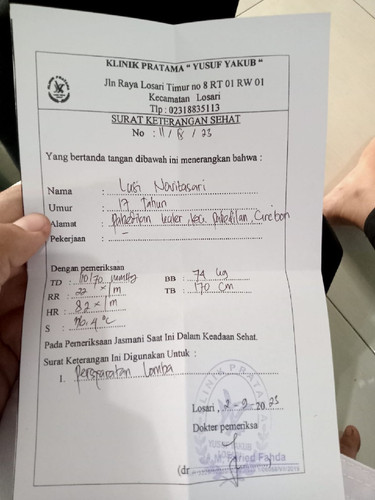 KLINIK PRATAMA " YUSUF YAKUB "
Jln Raya Losari Timur no 8 RT 01 RW 01
Kecamatan Losari
Tlp : 02318835113
SURAT KETERANGAN SEHAT
No : 11 / 8 / 23
Yang bertanda tangan dibawah ini menerangkan bahwa :
Nama : Lusi Novitasari
Umur : 17 Tahun
Alamat : Pabedilan kaler, kec. Pabedilan, Cirebon
Pekerjaan : -
Dengan pemeriksaan
TD : 110/70 mmHg BB : 74 kg
RR : 22 x/m TB : 170 cm
HR : 82 x/m
S : 36,4 °c
Pada Pemeriksaan Jasmani Saat Ini Dalam Keadaan Sehat.
Surat Keterangan Ini Digunakan Untuk :
1. Persyaratan Lomba
Losari, 2 - 9 - 2023
Dokter pemeriksa
KLINIK PRATAMA
Faried Fahda
(dr